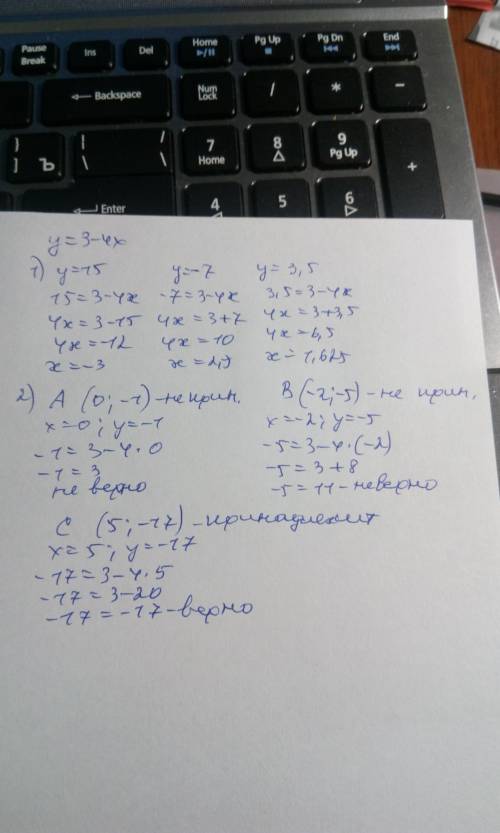 Pause Break
Ins
Del
Home
Pg Up
Pg Dn
End
Backspace
Num Lock
/
*
-
} ] Ъ
| \
/ \
7 Home
8
9 Pg Up
+
Enter
4
5
6
y=3-4x
1) y=15 y=-7 y=3,5
15=3-4x -7=3-4x 3,5=3-4x
4x=3-15 4x=3+7 4x=3+3,5
4x=-12 4x=10 4x=6,5
x=-3 x=2,5 x=1,625
2) A (0;-1)-не прин. B(-2;-5)-не прин.
x=0; y=-1 x=-2; y=-5
-1=3-4·0 -5=3-4·(-2)
-1=3 -5=3+8
не верно -5=11-неверно
C (5;-17)-принадлежит
x=5; y=-17
-17=3-4·5
-17=3-20
-17=-17-верно